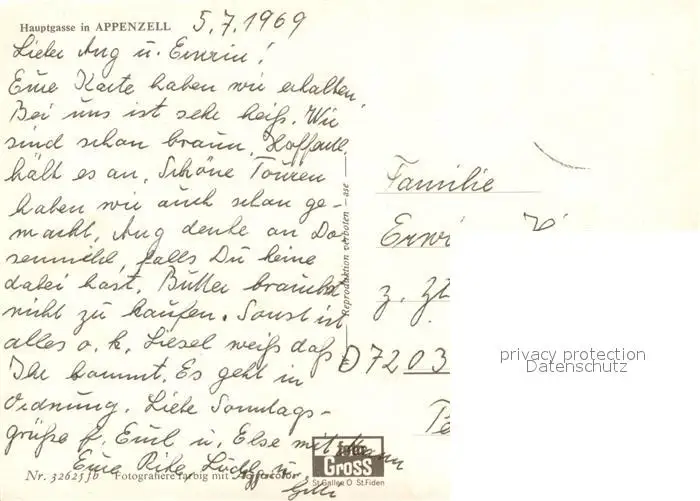 Hauptgasse in APPENZELL
5.7.1969
Liebe Ang u. Erwin!
Eure Karte haben wir erhalten.
Bei uns ist sehr heiß. Wir
sind schon braun. Hoffentl.
hält es an. Schöne Touren
haben wir auch schon ge-
macht, Ang denke an Do
senmilch, falls Du keine
dabei hast. Butter brauchst
nicht zu kaufen. Sonst ist
alles o.k. Liesel weiß daß
Ihr kommt. Es geht in
Ordnung. Liebe Sonntags-
grüße f. Emil u. Else mit
Eure Rike, u.
Nr. 32625fb Fotografiere farbig mit
Reproduktion verboten - ase
Foto GROSS
St. Gallen O St. Fiden
Familie
Erwi
z. Zt
D 7203
privacy protection
Datenschutz